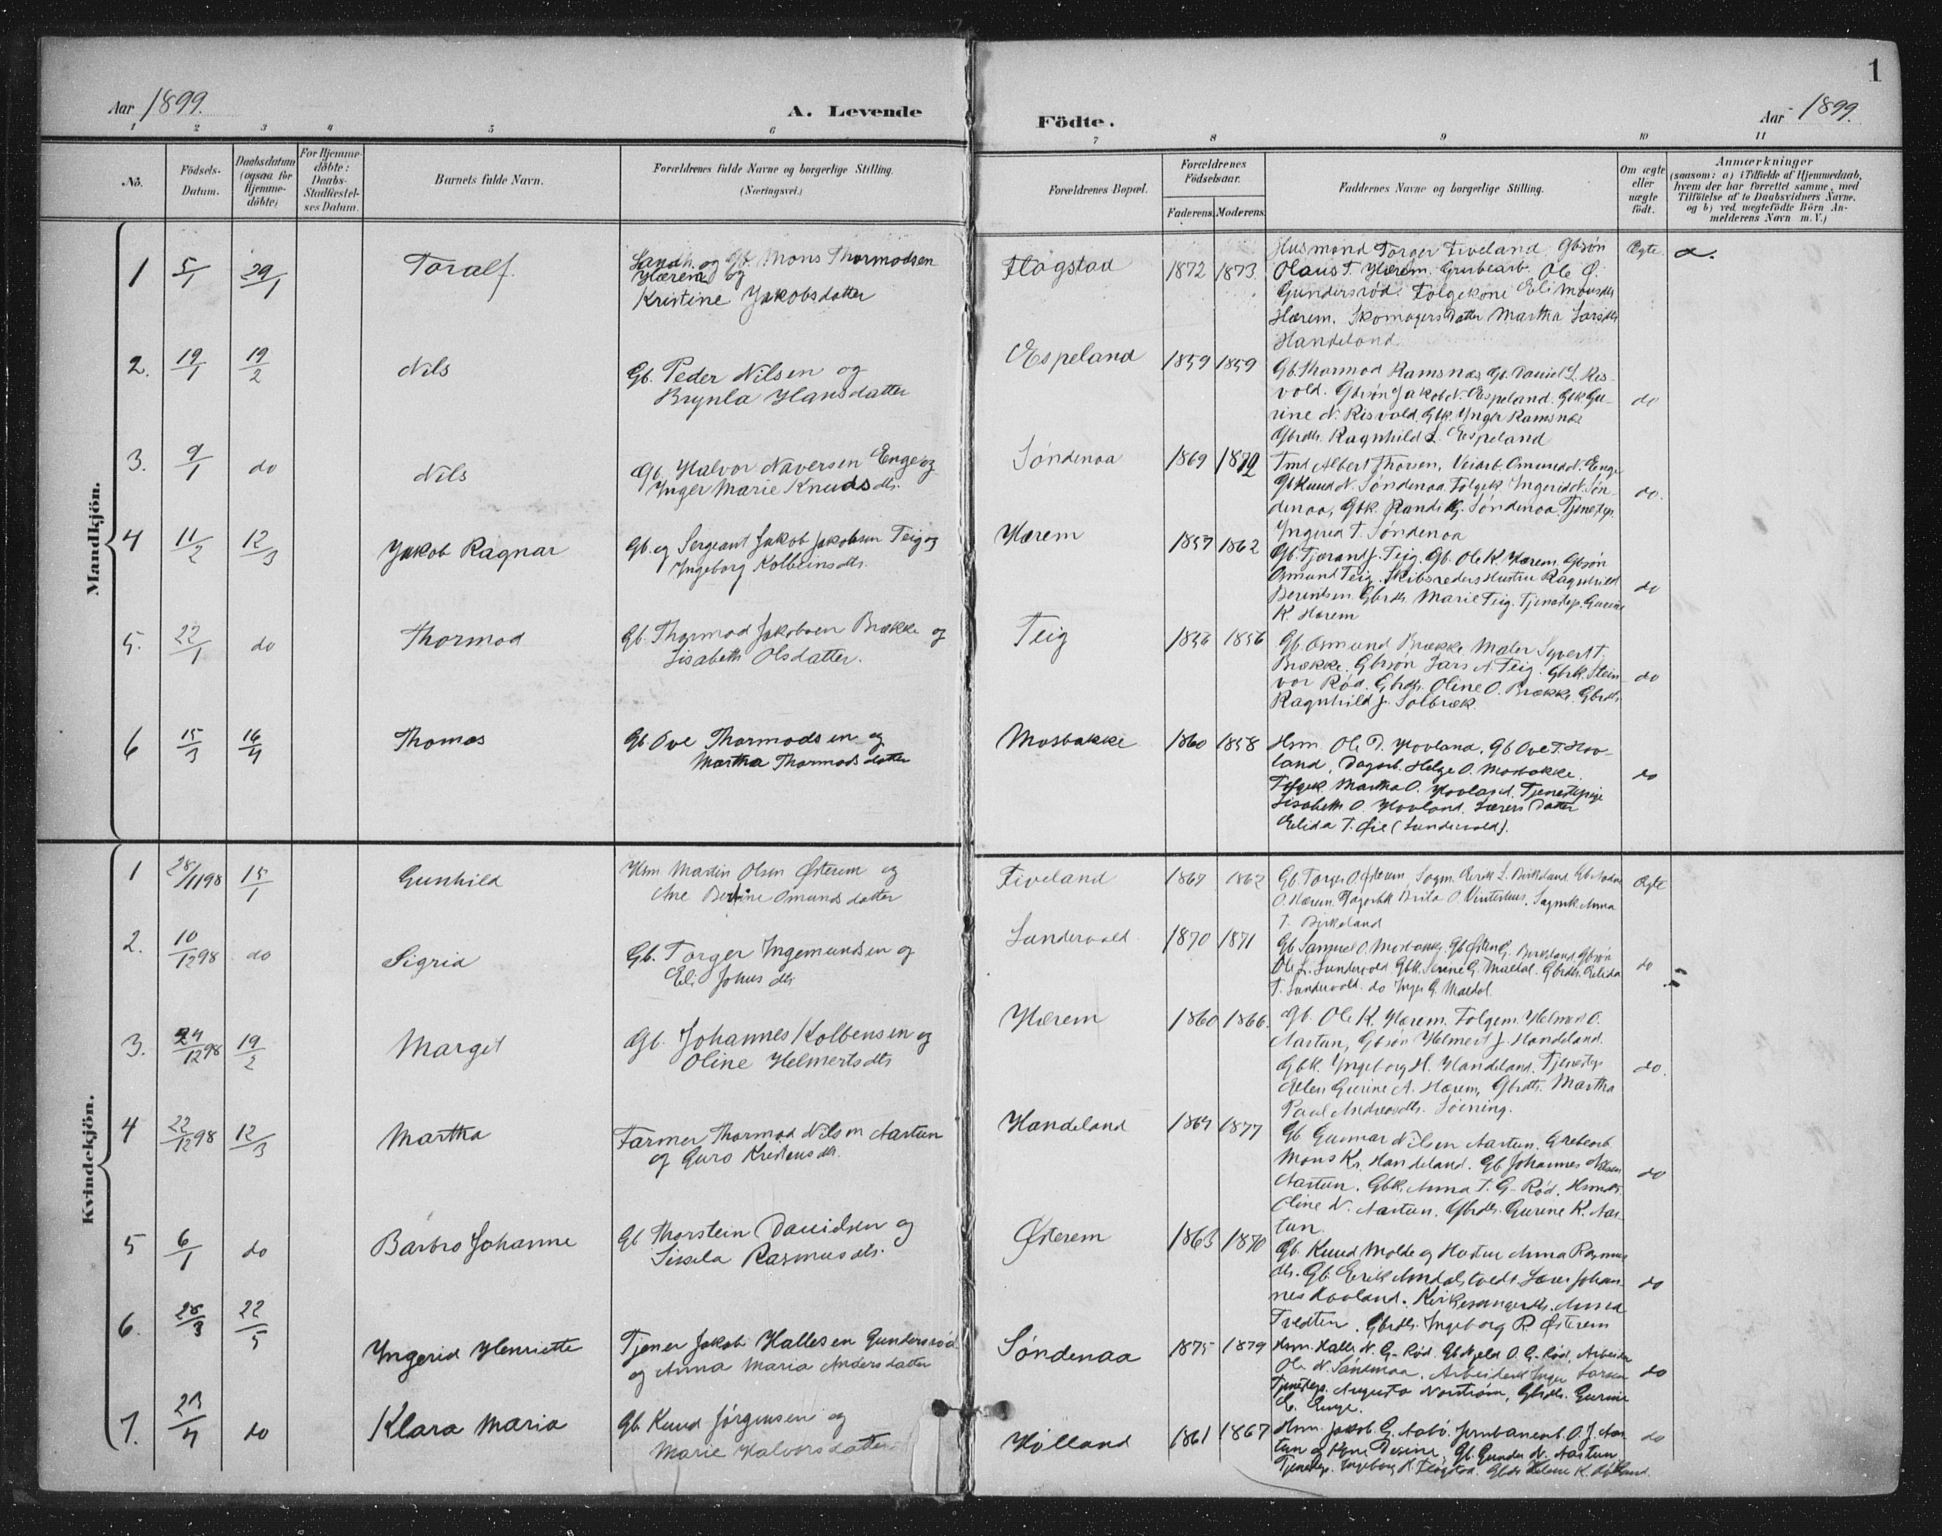 1
Aar 1899.
A. Levende
Födte.
Aar 1899.
1 2 3 4 5 6 7 8 9 10 11
No.
Födsels-
Datum.
Daabsdatum
(ogsaa for
Hjemme-
döbte)
For Hjemme-
döbte:
Daabs-
Stadfæstel-
ses Datum.
Barnets fulde Navn.
Forældrenes fulde Navne og borgerlige Stilling.
(Næringsvei.)
Forældrenes Bopæl.
Forældrenes
Födselsaar.
Faderens. Moderens.
Faddernes Navne og borgerlige Stilling.
Om ægte
eller
uægte
födt.
Anmærkninger
(saasom: a) i Tilfælde af Hjemmedaab,
hvem der har forrettet samme, med
Tilföielse af to Daabsvidners Navne.
og b) ved uægtefödte Börn An-
melderens Navn m. V.)
Mandkjön.
1 5/1 29/1 Toralf. Landh. og Gb. Mons Thormodsen
Hærem og
Kristine Jakobsdatter
Flogstad 1872 1873 Husmand Torger Fiveland Gbsøn
Olaus T. Hærem. Grubearb. Ole O.
Gundersrød. Folgekone Eli Monsdtr
Hærem. Skomagers Datter Martha Larsdtr
Handeland
Ægte a.
2. 19/1 19/2 Nils Gb. Peder Nilsen og
Brynla Hansdatter
Espeland 1859 1859 Gb. Thormod Ramsnæs Gb. Daniel L. Ris-
vold. Gbsøn Jakob N. Espeland. Gbk Gu-
rine N. Risvold Gbk. Inger Ramsnæs
Gbrdtr. Ragnhild L. Espeland
do
3. 9/1 do Nils Gb. Halvor Naversen Enge og
Inger Marie Knudsdtr.
Søndenaa 1869 1872 Tmd Albert Thorsen, Veiarb. Omund N. Enge
Gb Knud N. Søndenaa. Folgek. Ingerid N. Søn-
denaa, Gbk. Randi G. Søndenaa, Tjenestep.
Yngerid T. Søndenaa
do.
4 11/2 12/3 Jakob Ragnar Gb. og Sergeant Jakob Jakobsen Teig og
Ingeborg Kolbeinsdtr.
Hærem 1857 1862 Gb. Tjærand J. Teig. Gb. Ole K. Hærem. Gbsøn
Omund Teig. Skibsreders Hustru Ragnhild
Berentsen. Gbrdtr. Marie Teig. Tjenestep. Gurine
K. Hærem
do
5. 22/1 do Thormod Gb. Thormod Jakobsen Brække og
Lisabeth Olsdatter.
Teig 1856 Gb. Osmund Brække Maler Syvert T.
Brække. Gbsøn Lars N. Teig. Gbrk. Stein-
vor Rød. Gbrdtr. Oline O. Brække. Gbrdtr.
Ragnhild J. Solbræk.
do
6 15/3 16/4 Thomas Gb Ove Thormodsen og
Martha Thormodsdatter
Mosbakke 1860 1858 Hsm. Ole T. Hovland, Gb Ove T. Hov-
land, Dagarb. Helge O. Mosbakke.
Folgek Martha O. Hovland. Tjenestepige
Lisabeth O. Hovland. Lærers Datter
Elida T. Øie (Sandersvold).
do
Kvindekjön.
1 28/11 98 15/1 Gunhild Hsm Martin Olsen Østerem og
Ane Bertine Omundsdatter
Fiveland 1867 1862 Gb. Torger O. Østerem Sagm. Eerik L. Birkeland
O. Hærem. Brila O. Vinterhus, Sagmk Anna
T. Birkeland
Ægte
2. 10/12 98 do Sigrid Gb. Torger Ingemundsen og
Eli Johnsdtr
Sandersvold 1870 1871 Gb Samuel O. Mosbakke, Birkeland Gbsøn
Ole L. Sundersvold Gbk. Sirene G. Maldal. Gbrdtr. Eelida
T. Sandersvold. do Inger G. Maldal.
do
3. 24/12 98 19/2 Margit Gb. Johannes Kolbensen og
Oline Helmertsdtr
Hærem 1860 1866. Gb. Ole K. Hærem. Folgem. Helmert O.
Aartun, Gbsøn Helmert J. Handeland.
Gbk. Ingeborg H. Handeland. Tjenestep
Helen Gurine A. Hærem, Gbrdtr. Martha
Paul Andreasdtr. Soining.
do.
4 22/12 98 12/3 Martha Farmer Thormod Nilsen Aartun
og Guro Kristensdtr.
Handeland 1869 1877 Gb Gunnar Nilsen Aartun. Grubearb
Mons Kr. Handeland. Gb Johannes Nilsen
Aartun. Gbk. Anna T. G-Rød, Hsmdtr.
Oline N. Aartun. Gbrdtr. Gurine K. Aar-
tun.
do
5 6/1 do Barbro Johanne Gb Thorstein Davidsen og
Sissela Rasmusdtr.
Østerem 1863 1870 Gb. Knud Molde og Hustru Anna Rasmus
dtr. Gb. Eerik Amdalstvedt Lærer Johan-
nes Hovland. Kirkesangerdtr. Anna
Tvedten. Gbrdtr. Ingeborg R. Østerem
do
6. 28/3 22/5 Yngerid Henriette Tjener Jakob Hallesen Gundersrød
og Anna Maria Andersdatter
Søndenaa 1875 1879 Hsm. Halle N. G-Rød. Gb Kjeld O. G-Rød, Arbeider
Ole N. Søndenaa. Arbeiderk Inger Larsen
Tjenestep. Augusta Norstrøm, Gbrdtr. Gurine
E. Enge.
do
7. 23/4 do Klara Maria Gb. Knud Jørgensen og
Marie Halvorsdatter
Hølland 1861 1867 Hsm. Jakob G. Aabø. Jernbanearb. O. J. Aar-
tun og Kone Desine, Gb. Gunder N. Aartun,
Tjenestep. Ingeborg K. Flogstad. Gbdtr Helene K. Hølland.
do